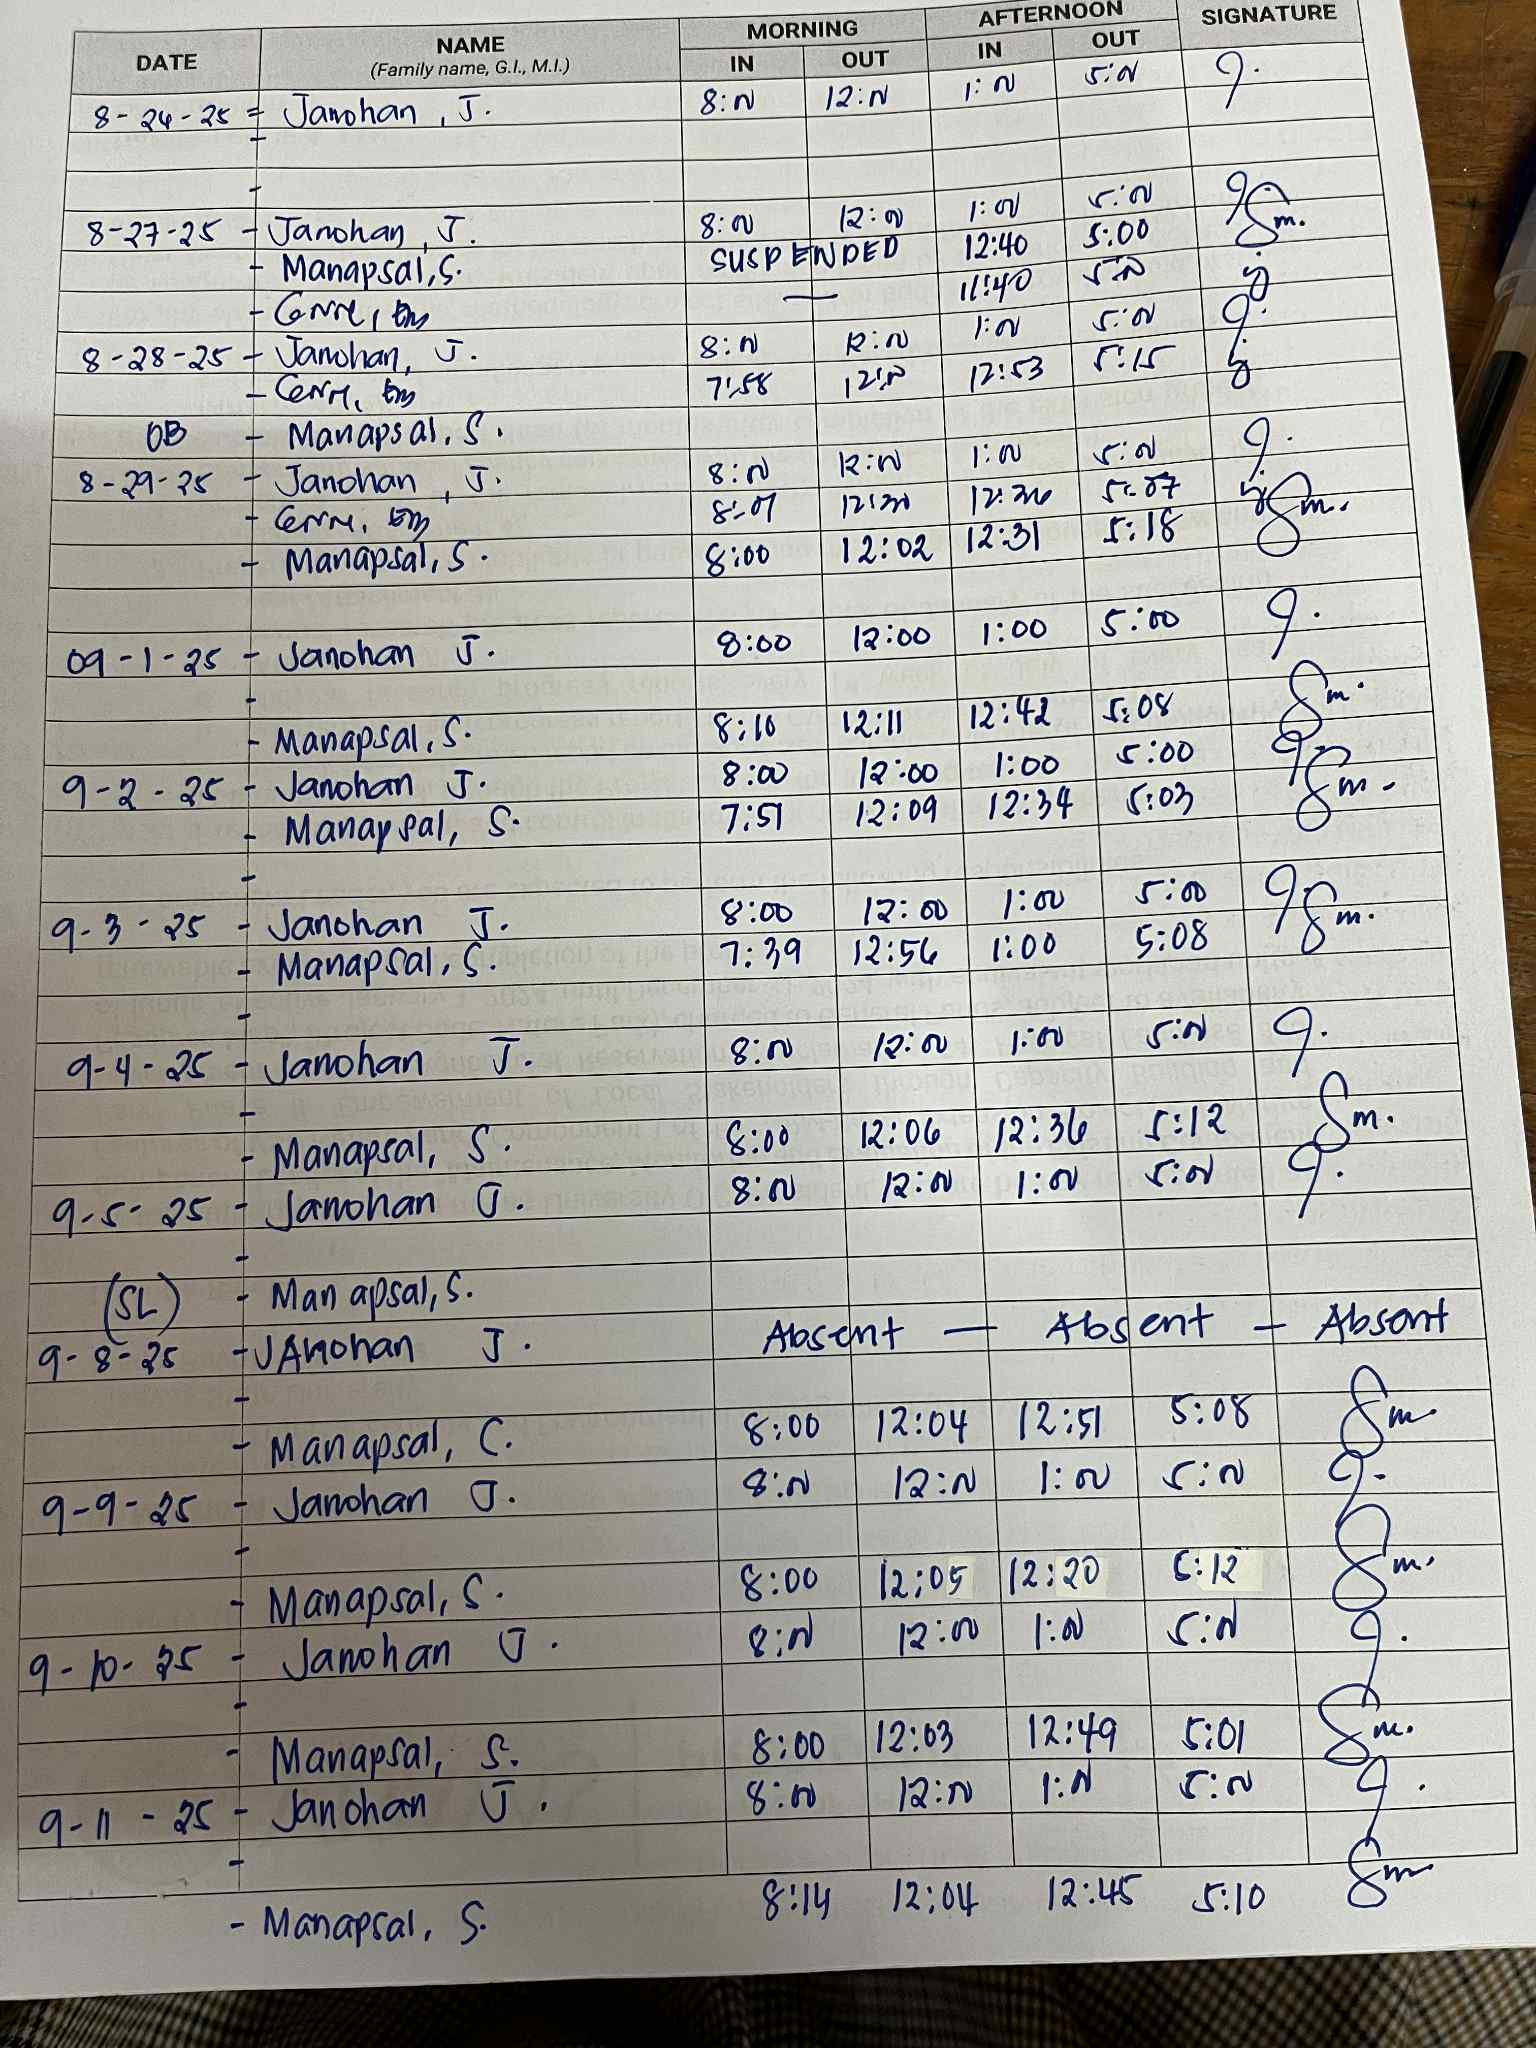 DATE NAME (Family name, G.I., M.I.) MORNING IN OUT AFTERNOON IN OUT SIGNATURE
8-24-25 = Janohan, J. 8:00 12:00 1:00 5:00
-
-
8-27-25 - Janohan, J. 8:00 12:00 1:00 5:00
- Manapsal, S. SUSPENDED 12:40 5:00 Sm.
- — 11:40 5:00
8-28-25 - Janohan, J. 8:00 12:00 1:00 5:00
- 7:58 12:00 12:53 5:15
OB - Manapsal, S.
8-29-25 - Janohan, J. 8:00 12:00 1:00 5:00
- 5:07
- Manapsal, S. 8:00 12:02 12:31 5:18 Sm.
09-1-25 - Janohan J. 8:00 12:00 1:00 5:00
-
- Manapsal, S. 8:10 12:11 12:42 5:08 Sm.
9-2-25 - Janohan J. 8:00 12:00 1:00 5:00
- Manapsal, S. 7:51 12:09 12:34 5:03 Sm.
-
9-3-25 - Janohan J. 8:00 12:00 1:00 5:00
- Manapsal, S. 7:39 12:56 1:00 5:08 Sm.
-
9-4-25 - Janohan J. 8:00 12:00 1:00 5:00
-
- Manapsal, S. 8:00 12:06 12:36 5:12 Sm.
9-5-25 - Janohan J. 8:00 12:00 1:00 5:00
-
(SL) - Manapsal, S.
9-8-25 - JANohan J. Absent — Absent — Absent
-
- Manapsal, C. 8:00 12:04 12:51 5:08 Sm
9-9-25 - Janohan J. 8:00 12:00 1:00 5:00
-
- Manapsal, S. 8:00 12:05 12:20 5:12 Sm.
9-10-25 - Janohan J. 8:00 12:00 1:00 5:00
-
- Manapsal, S. 8:00 12:03 12:49 5:01 Sm.
9-11-25 - Janohan J. 8:00 12:00 1:00 5:00
-
- Manapsal, S. 8:14 12:04 12:45 5:10 Sm